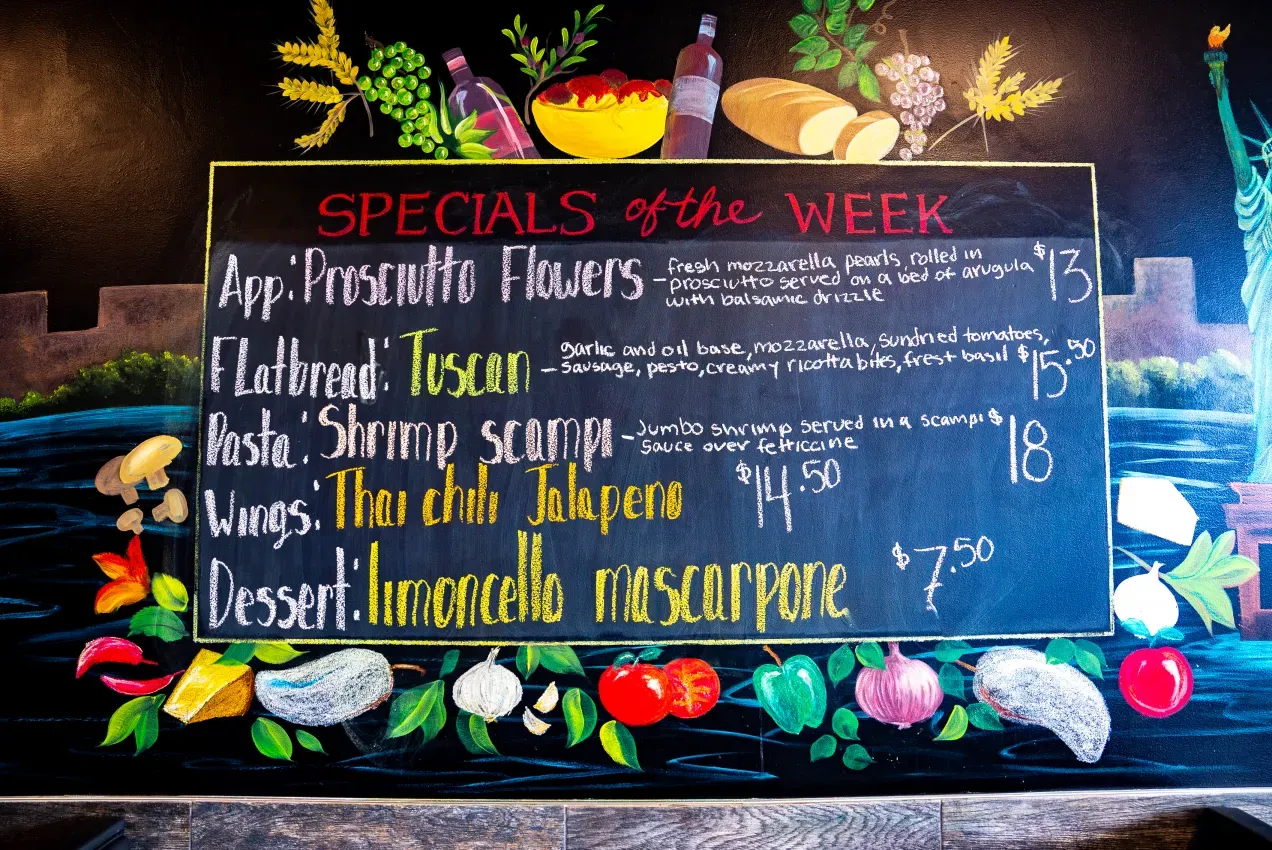 SPECIALS of the WEEK
App: Prosciutto Flowers - fresh mozzarella pearls, rolled in
prosciutto served on a bed of arugula $13
with balsamic drizzle
Flatbread: Tuscan - garlic and oil base, mozzarella, sundried tomatoes,
sausage, pesto, creamy ricotta bites, fresh basil $15.50
Pasta: Shrimp scampi - Jumbo shrimp served in a scampi $18
sauce over fetticcine
Wings: Thai chili Jalapeno $14.50
Dessert: limoncello mascarpone $7.50